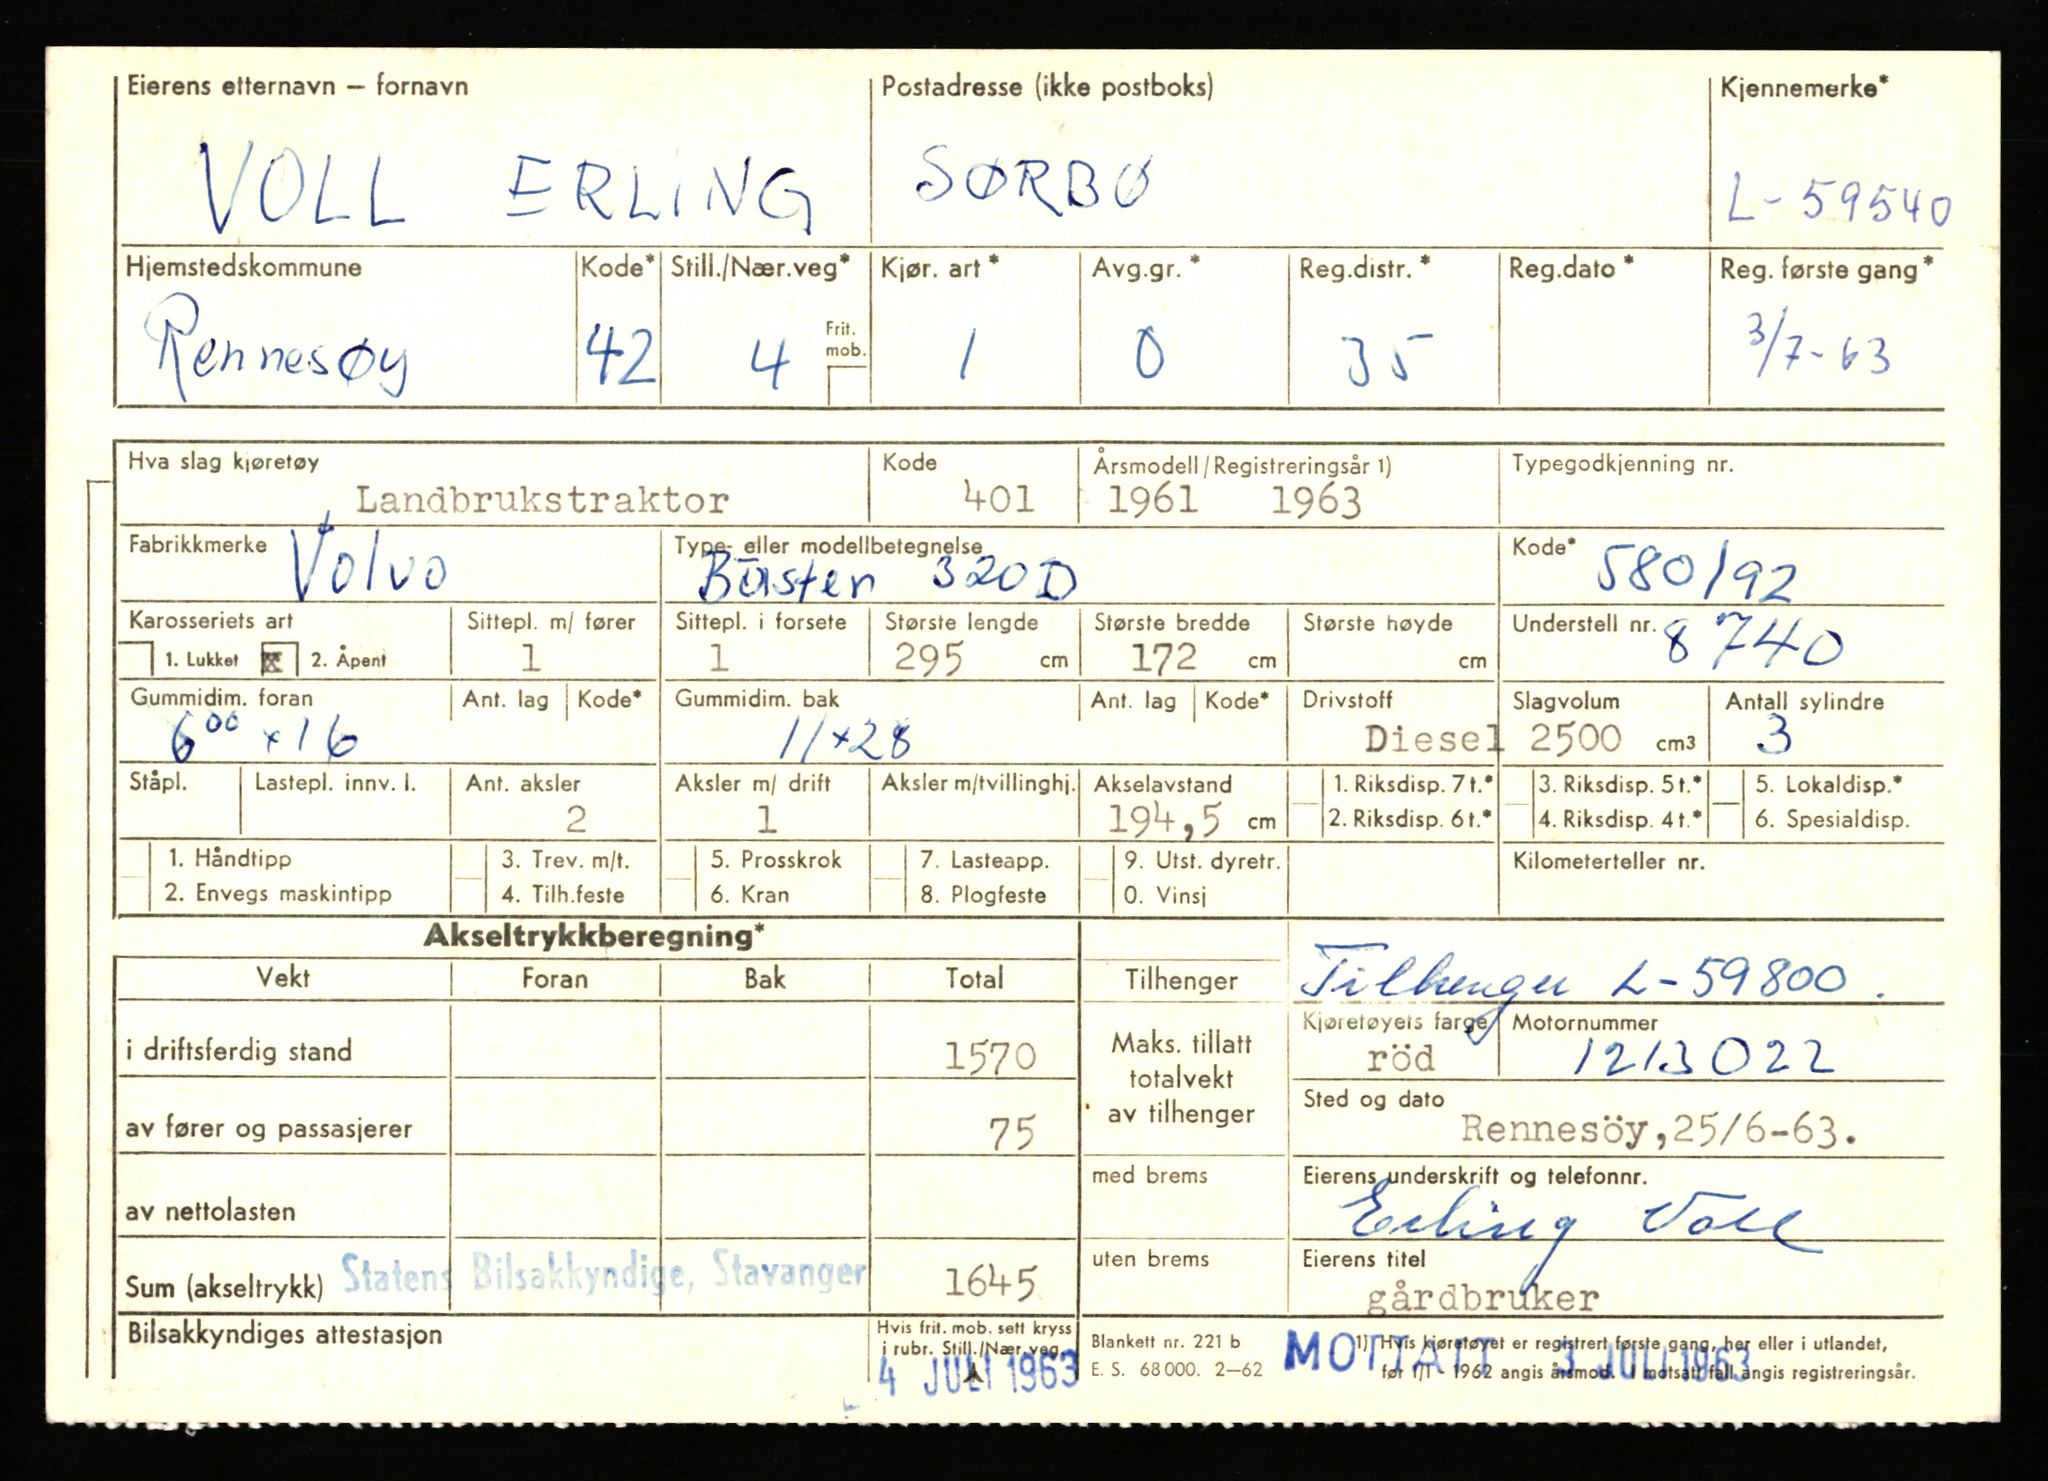 Eierens etternavn – fornavn Postadresse (ikke postboks) Kjennemerke*
VOLL ERLING SØRBØ L-59540
Hjemstedskommune Kode* Still./Nær.veg* Kjør. art* Avg.gr.* Reg.distr.* Reg.dato* Reg. første gang*
Rennesøy 42 4 Frit. mob. 1 0 35 3/7-63
Hva slag kjøretøy Kode Årsmodell/Registreringsår 1) Typegodkjenning nr.
Landbrukstraktor 401 1961 1963
Fabrikkmerke Volvo Type- eller modellbetegnelse Kode* 580/92
Buster 320D
Karosseriets art Sittepl. m/ fører Sittepl. i forsete Største lengde Største bredde Største høyde Understell nr. 8740
1. Lukket x 2. Åpent 1 1 295 cm 172 cm cm
Gummidim. foran Ant. lag Kode* Gummidim. bak Ant. lag Kode* Drivstoff Slagvolum Antall sylindre
6⁰⁰ x 16 11 x 28 Diesel 2500 cm3 3
Ståpl. Lastepl. innv. l. Ant. aksler Aksler m/ drift Aksler m/tvillinghj. Akselavstand 1. Riksdisp. 7 t.* 3. Riksdisp. 5 t.* 5. Lokaldisp.*
2 1 194,5 cm 2. Riksdisp. 6 t.* 4. Riksdisp. 4 t.* 6. Spesialdisp.
1. Håndtipp 3. Trev. m/t. 5. Prosskrok 7. Lasteapp. 9. Utst. dyretr. Kilometerteller nr.
2. Envegs maskintipp 4. Tilh.feste 6. Kran 8. Plogfeste 0. Vinsj
Akseltrykkberegning*
Vekt Foran Bak Total Tilhenger Tilhenger L-59800.
Kjøretøyets farge Motornummer
i driftsferdig stand 1570 Maks. tillatt totalvekt av tilhenger röd 1213022
Sted og dato
av fører og passasjerer 75 Rennesöy, 25/6-63.
med brems Eierens underskrift og telefonnr.
av nettolasten Erling Voll
uten brems Eierens titel
Sum (akseltrykk) Statens Bilsakkyndige, Stavanger 1645 gårdbruker
Bilsakkyndiges attestasjon Hvis frit. mob. sett kryss i rubr. Still./Nær.veg. Blankett nr. 221 b 1) Hvis kjøretøyet er registrert første gang, her eller i utlandet,
4 JULI 1963 E. S. 68 000. 2–62 MOTTATT 3 JULI 1963 før 1/1 - 1962 angis årsmod. I motsatt fall angis registreringsår.